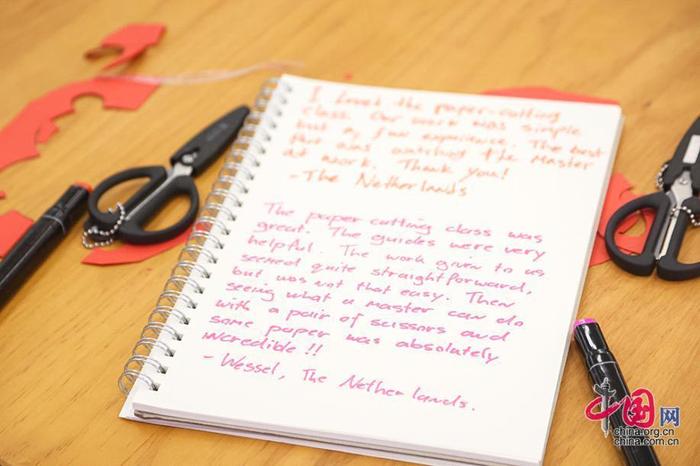 I loved the paper-cutting
class. Our work was simple
but a fun experience. The best
Part was watching the Master
at work. Thank you!
- The Netherlands
The paper cutting class was
great. The guides were very
helpful. The work given to us
seemed quite straightforward,
but was not that easy. Then
seeing what a master can do
with a pair of scissors and
some paper was absolutely
incredible!!
- Wessel, The Netherlands.
中国网
china.org.cn
china.com.cn